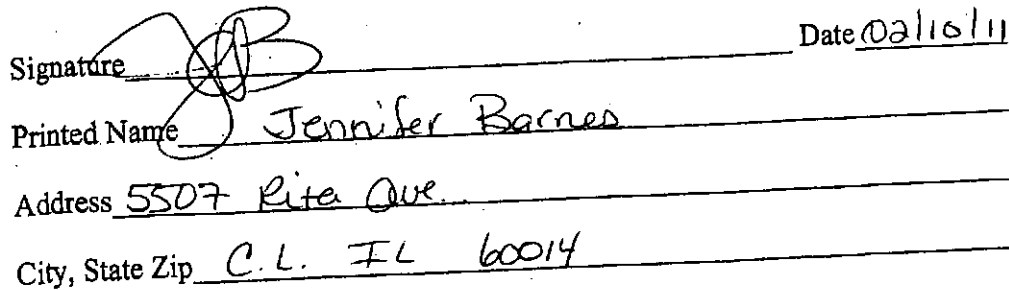 Signature JB Date 02/10/11
Printed Name Jennifer Barnes
Address 5507 Rita Ave.
City, State Zip C.L. IL 60014